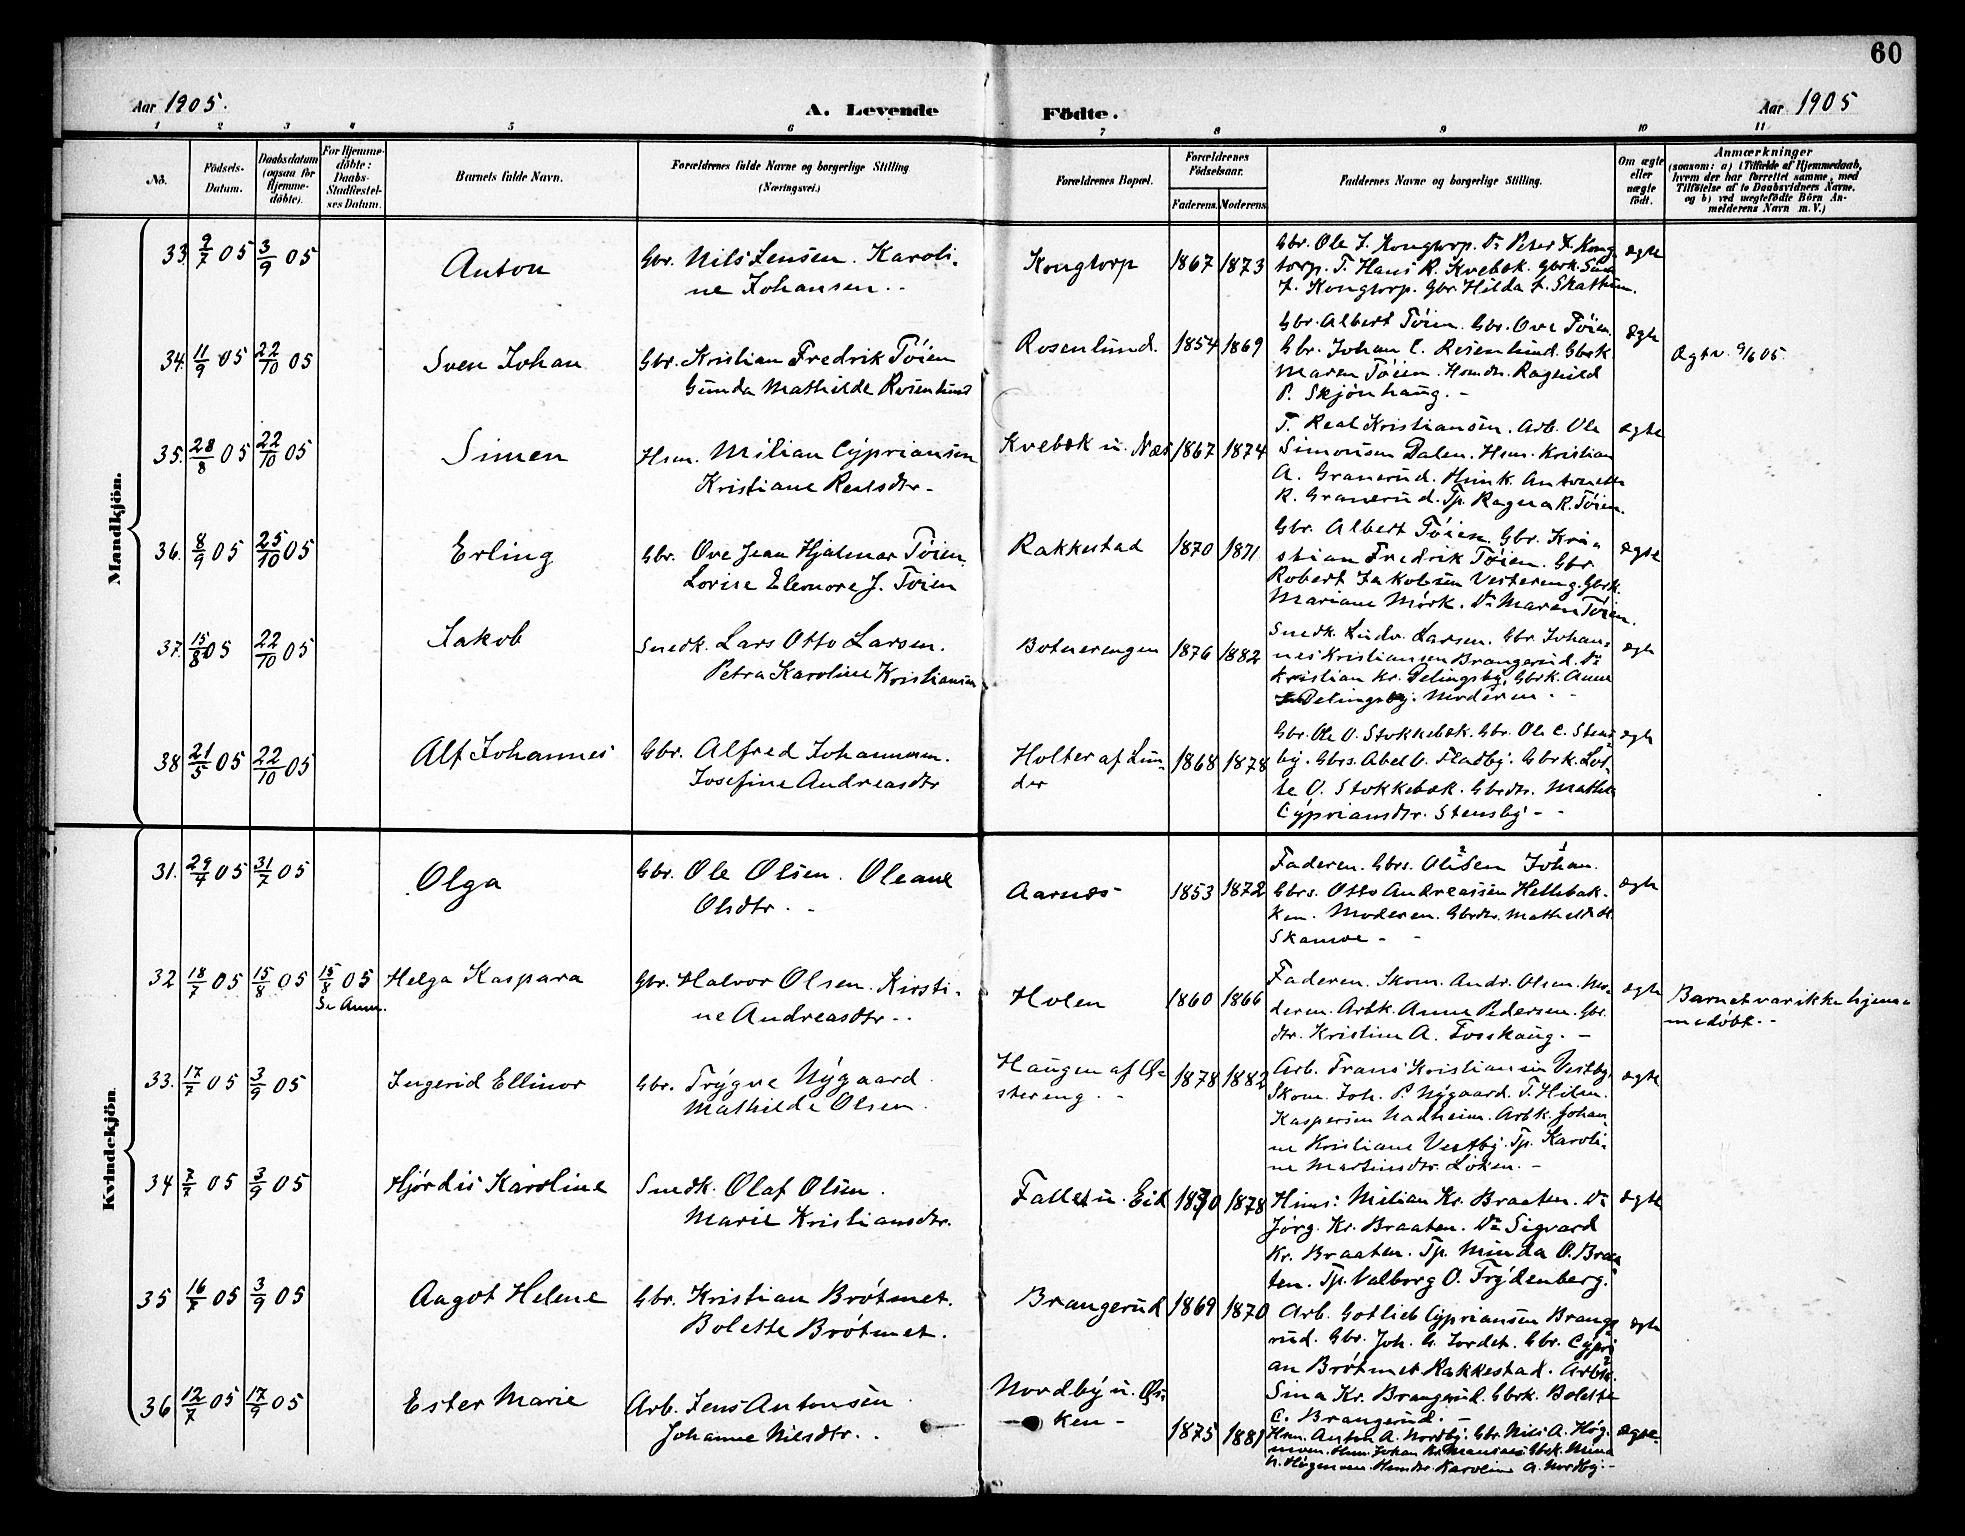 60
Aar 1905.
A. Levende
Födte.
Aar 1905
1 2 3 4 5 6 7 8 9 10 11
No.
Födsels-
Datum.
Daabsdatum
(ogsaa for
Hjemme-
döbte).
For Hjemme-
döbte:
Daabs-
Stadfæstel-
ses Datum.
Barnets fulde Navn.
Forældrenes fulde Navne og borgerlige Stilling
(Næringsvei.)
Forældrenes Bopæl.
Forældrenes
Födselsaar.
Faderens. Moderens.
Faddernes Navne og borgerlige Stilling.
Om ægte
eller
uægte
födt.
Anmærkninger
(saasom: a) i Tilfælde af Hjemmedaab,
hvem der har forrettet samme, med
Tilföielse af to Daabsvidners Navne,
og b) ved uægtefödte Börn An-
melderens Navn m. V.)
Mandkjön.
33. 9/7 05 3/9 05
Anton
Gbr. Nils Jensen. Karoli-
ne Johansen.
Kongtorp
1867 1873
Gbr. Ole J. Kongtorp. Do Peter J. Kong-
torp. T. Hans R. Kvebæk. Gbrk.
J. Kongtorp. Gbr. Hilda J. Skattum.
ægte
34. 11/9 05 22/10 05
Sven Johan
Gbr. Kristian Fredrik Töien
Gunda Mathilde Rosenlund
Rosenlund.
1854 1869
Gbr. Albert Töien. Gbr. Ove Töien.
Gbr. Johan C. Rosenlund. Gbrk.
Maren Töien. Hsmdtr. Ragnhild
P. Skjönhaug. -
Ægte
Ægtv. 9/6 05.
35. 28/8 05 22/10 05
Simen
Hsm. Milian Cyprianson
Kristiane Realsdtr -
Kvebæk u. Næs
1867 1874
T. Real Kristiansen. Arb. Ole
Simonsen Dalen. Hsm. Kristian
A. Granerud. Hsmk. Antonette
R. Granerud. Tp. Ragna R. Töien.
ægte
36. 8/9 05 25/10 05
Erling
Gbr. Ove Jean Hjalmar Töien.
Lovise Eleonore J. Töien
Rakkestad
1870 1871
Gbr. Albert Töien. Gbr. Kri-
stian Fredrik Töien. Gbr.
Robert Jakobsen Vestereng. Gbrk.
Mariane Mörk. Do Maren Töien.
ægte
37. 15/8 05 22/10 05
Jakob
Snedk. Lars Otto Larsen.
Petra Karoline Kristiansen
Botnerengen
1876 1882
Snedk. Ludv. Larsen. Gbr. Johan-
nes Kristiansen Brangerud. Do
Kristian Kr. Delingsby. Gbrk. Anne
Delingsby. Moderen. -
ægte
38 21/5 05 22/10 05
Alf Johannes
Gbr. Alfred Johannesen.
Josefine Andreasdtr
Holter af Lun-
der
1868 1878
Gbr. Ole O. Stokkebæk. Gbr. Ole C. Stens-
by. Gbrs. Abel O. Fladby. Gbrk. Lot-
te O. Stokkebæk. Gbrdtr. Mathea
Cypriansdtr. Stensby - -
ægte
Kvindekjön
31. 29/4 05 31/7 05
Olga
Gbr. Ole Olsen. Oleane
Olsdtr. -
Aarnæs
1853 1872
Faderen. Gbrs. Olsen Johan.
Gbrs. Otto Andreassen Hellebæk-
ken. Moderen. Gbrdtr. Mathilde H.
Skamoe - -
ægte
32 18/7 05 15/8 05 15/8 05
Se Anm.
Helga Kaspara
Gbr. Halvor Olsen. Kirsti-
ne Andreasdtr -.
Holen
1860 1866
Faderen. Skom. Andr. Olsen. Mo-
deren. Arbk. Anne Pedersen. Gbr.
dtr. Kristine A. Fosshaug. -
ægte
Barnet var ikke hjem-
medöbt. -
33. 17/7 05 3/9 05
Ingerid Ellinor
Gbr. Trygve Nygaard.
Mathilde Olsen.
Haugen af Ø-
stereng. -
1878 1882
Arb. Frans Kristiansen Vestby.
Skom. Joh. P. Nygaard. T. Hilm.
Kaspersen Nadheim. Arbk. Johan-
ne Kristiane Vestby. Tp. Karoli-
ne Martinsdtr. Löken. -
ægte
34 7/7 05 3/9 05
Hjördis Karoline
Snedk. Olaf Olsen.
Marie Kristiansdtr.
Fallet u. Eid
1870 1878
Hsms: Milian Kr. Braaten. Do
Jörg. Kr. Braaten. Do Sigvard
Kr. Braaten. Tp. Minda O. Braa-
ten. Tp. Valborg O. Frydenberg.
ægte
35 16/7 05 3/9 05
Aagot Helene
Gbr. Kristian Brötmet.
Bolette Brötmet.
Brangerud
1869 1870
Arb. Gotlieb Cypriansen Brange-
rud. Gbr. Joh. G. Jordet. Gbr. Cypri-
an Brötmet Rakkestad. Arbk.
Sina Kr. Brangerud. Gbrk. Bolette
C. Brangerud. -
ægte
36 12/7 05 17/9 05
Ester Marie
Arb. Jens Antonsen.
Johanne Nilsdtr. .
Nordby u. Øs-
ken -
1875 1881
Hsm. Anton A. Nordby. Gbr. Nils A. Hög-
moen. Hsm. Johan Kr. Gbrk. Mina
A. Högmoen. Hsmdtr. Karoline A. Nordby. -
ægte.